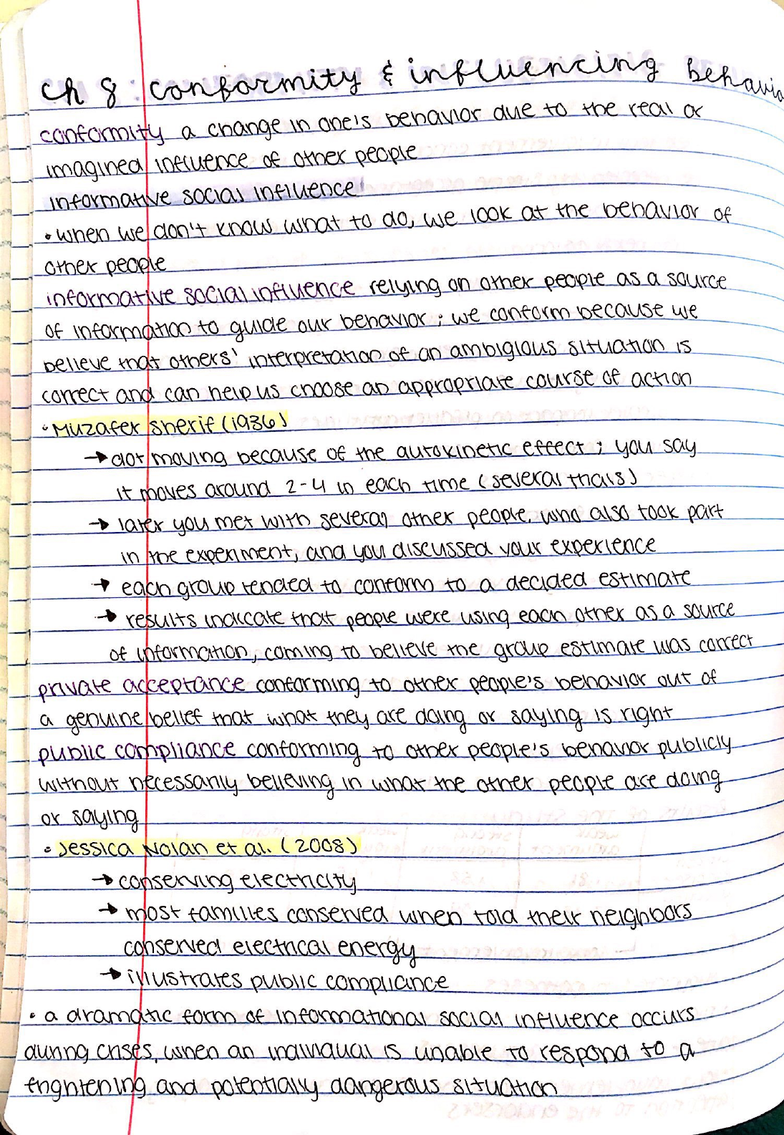 ch 8: conformity & influencing behavio
conformity a change in one's behavior due to the real or
imagined influence of other people
informative social influence
• when we don't know what to do, we look at the behavior of
other people
informative social influence relying on other people as a source
of information to guide our behavior; we conform because we
believe that others' interpretation of an ambigious situation is
correct and can help us choose an appropriate course of action
• Muzafer Sherif (1936)
→ dot moving because of the autokinetic effect; you say
it moves around 2-4 in each time (several trials)
→ later you met with several other people, who also took part
in the experiment, and you discussed your experience
→ each group tended to conform to a decided estimate
→ results indicate that people were using each other as a source
of information, coming to believe the group estimate was correct
private acceptance conforming to other people's behavior out of
a genuine belief that what they are doing or saying is right
public compliance conforming to other people's behavior publicly
without necessarily believing in what the other people are doing
or saying
• Jessica Nolan et al. (2008)
→ conserving electricity
→ most families conserved when told their neighbors
conserved electrical energy
→ illustrates public compliance
• a dramatic form of informational social influence occurs
during crises, when an individual is unable to respond to a
frightening and potentially dangerous situation